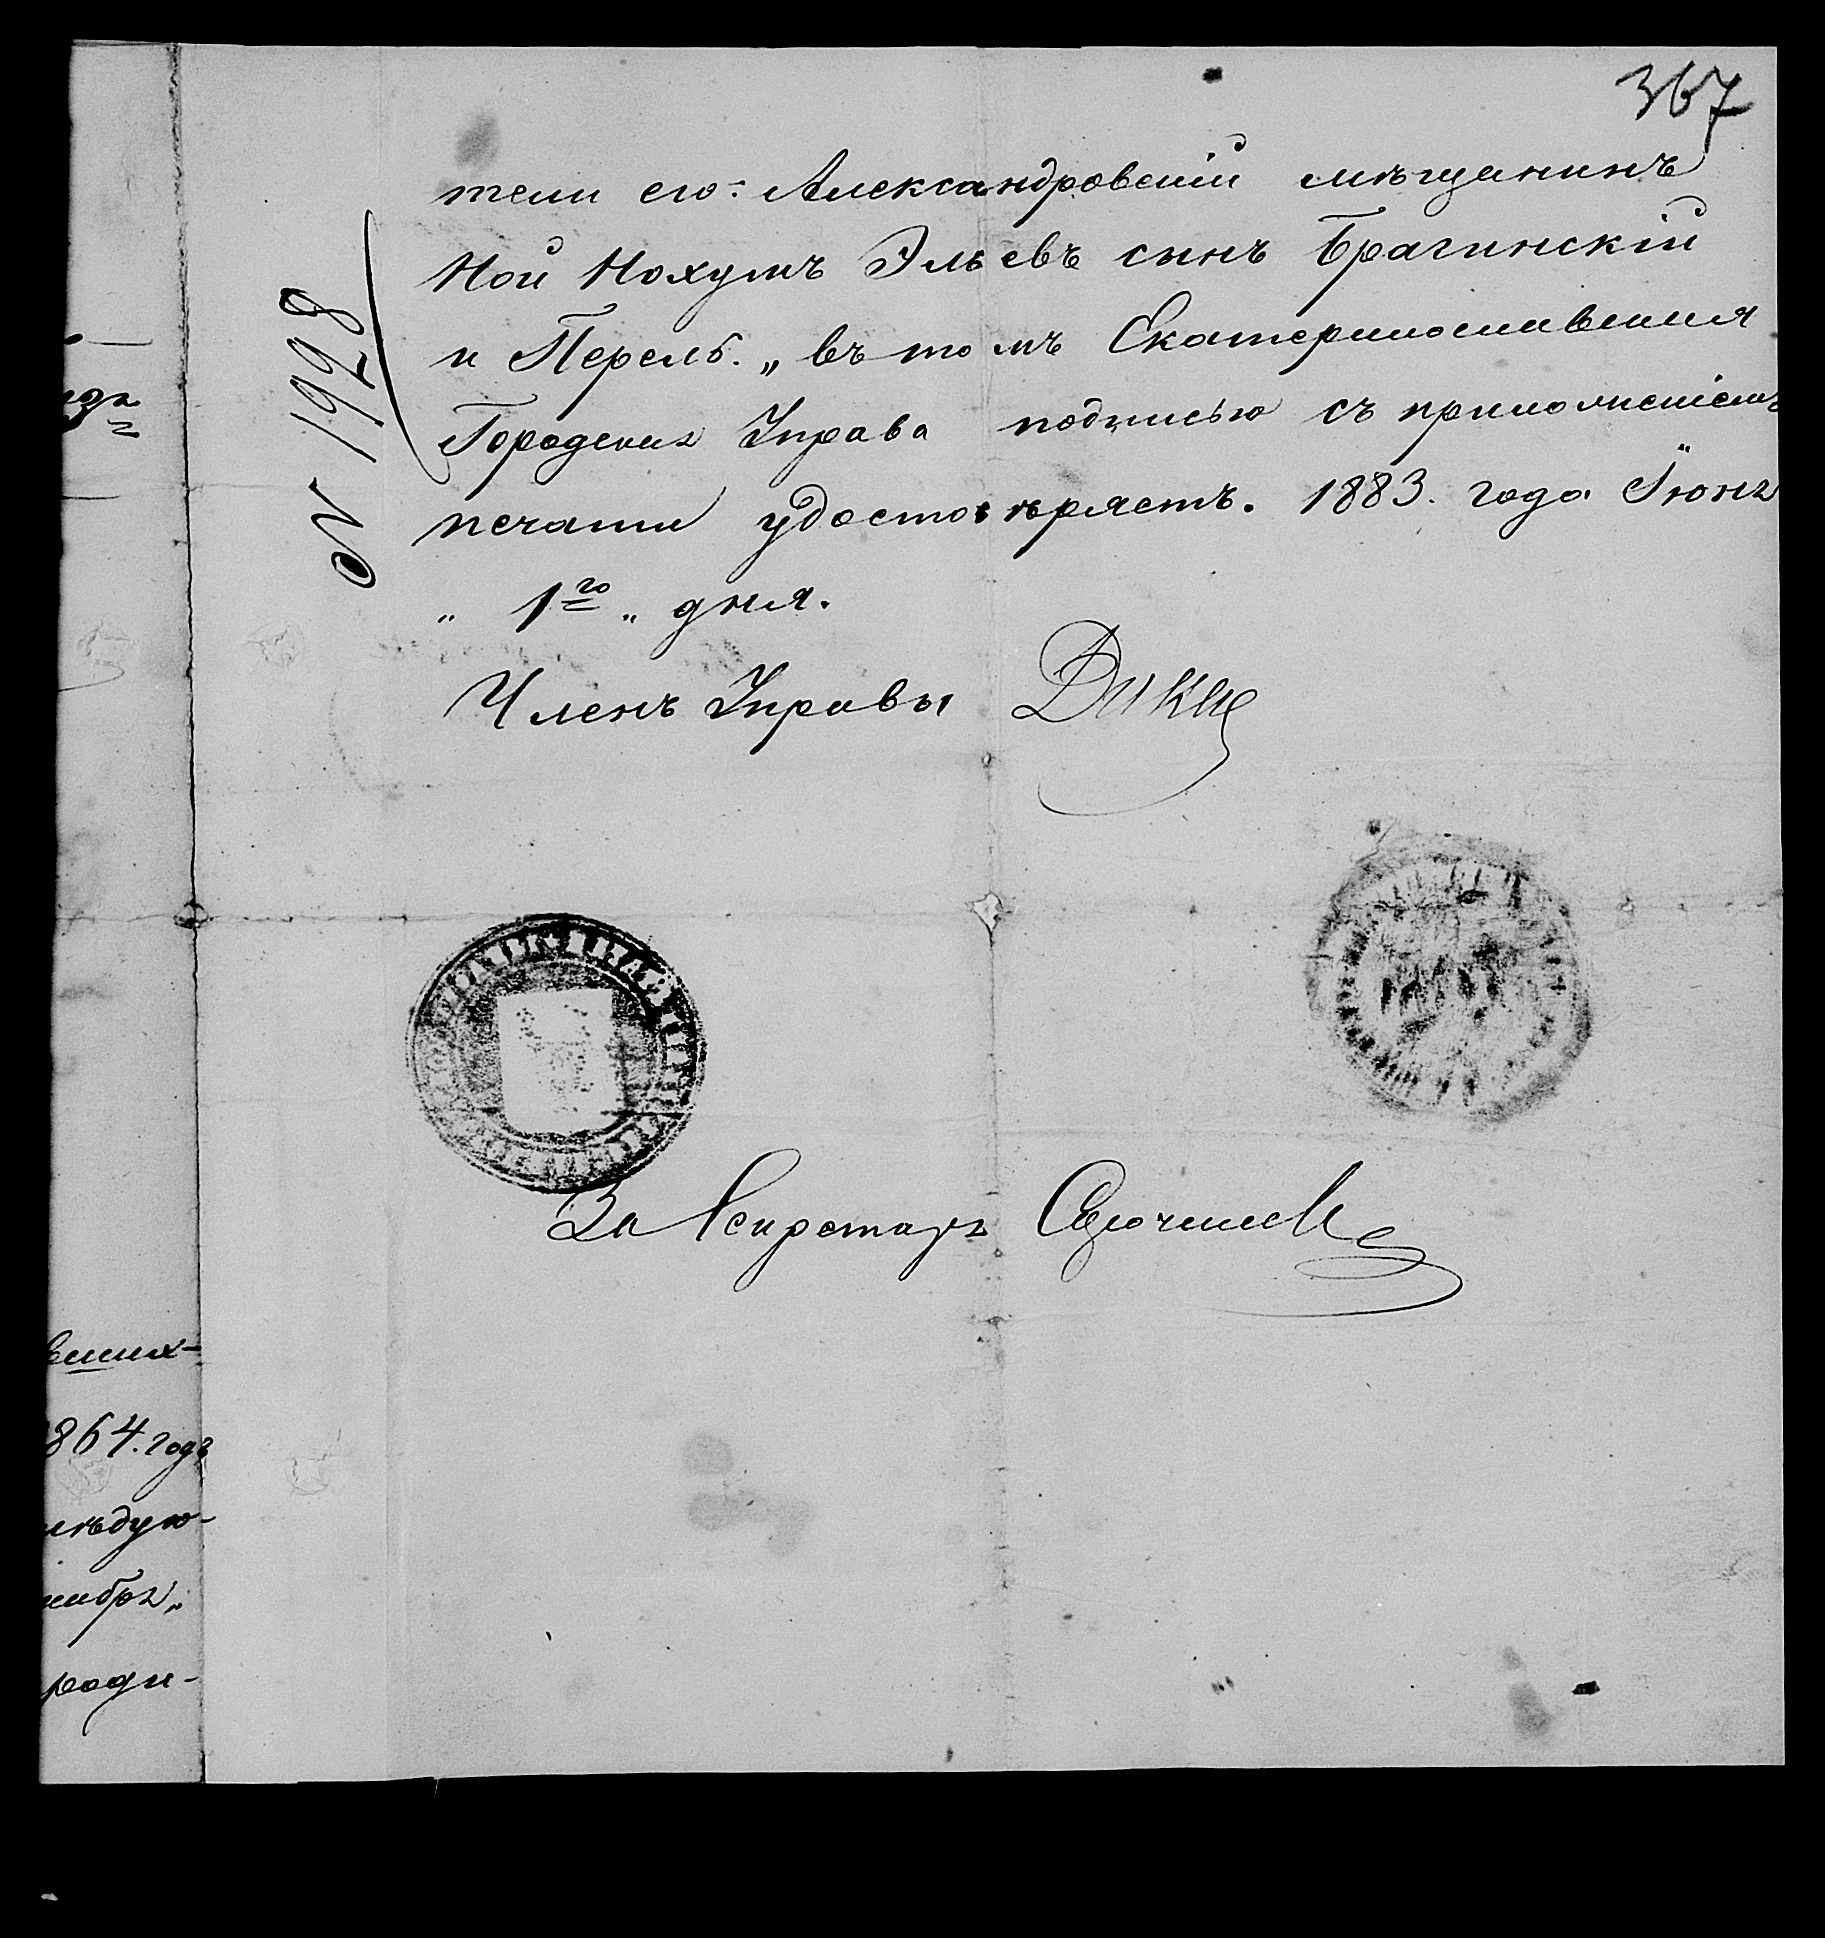 367
тели его: Александровскій мѣщанинъ
Ной Нохумъ Эльевъ сынъ Брагинскій
и Перель. „ въ томъ Екатеринославская
Городская Управа подписью съ приложеніемъ
печати удостовѣряетъ. 1883. года Іюня
„ 1го „ дня.
Членъ Управы
За Секретаря
№ 1928
864. года
роди-